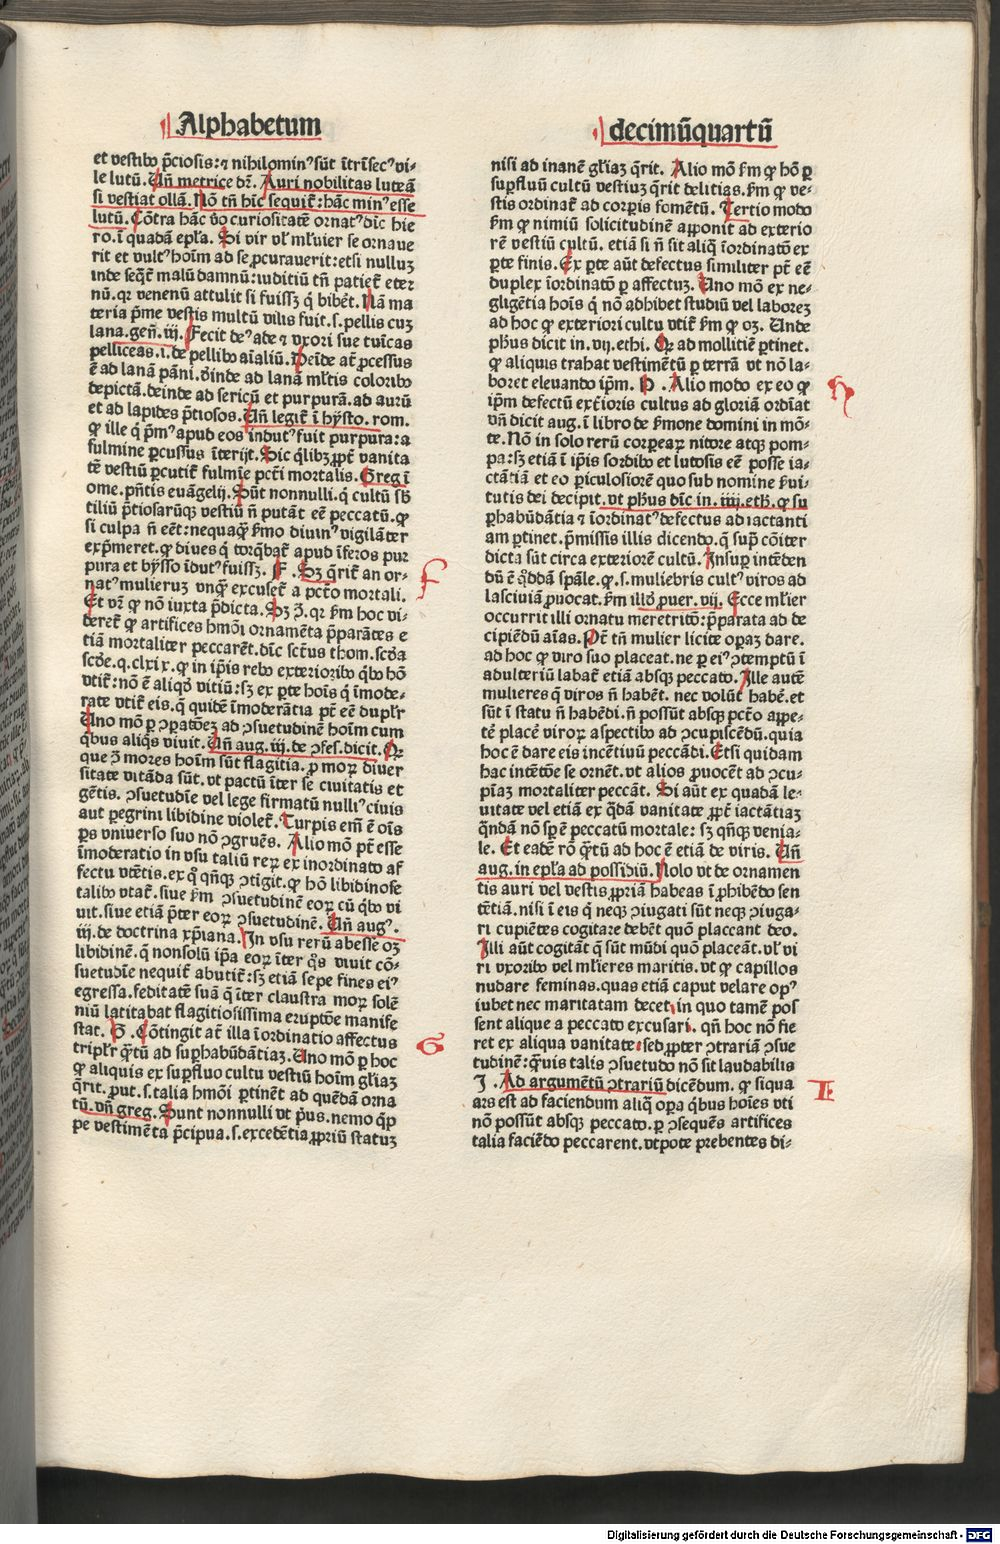 Alphabetum
et vestibꝰ p̄ciosis:⁊ nihilominꝰ sūt ītrīsecꝰ vi-
le lutū. Vn̄ metrice dr̄. Auri nobilitas luteā
si vestiat ollā. Nō tn̄ hic sequit᷑: hāc minꝰ esse
lutū. Cōtra hāc v̊o curiositatē ornatꝰ dic̄ hie
ro. ī quadā epl̄a. Si vir vl̓ ml̓ier se ornaue
rit et vultꝰ hoīm ad se ꝓcurauerit: etsi nulluꝫ
inde seq̄t᷑ malū damnū: iuditiū tn̄ patiet᷑ eter
nū. qꝛ venenū attulit si fuissꝫ q̄ bibēt. Nā ma
teria p̄me vestis multū vilis fuit. s. pellis cuꝫ
lana. gen̄. iij. Fecit deꝰ ade ⁊ vxori sue tuīcas
pelliceas. i. de pellibꝰ aīaliū. Deīde at᷑ ꝓcessus
ē ad lanā pāni. d̓inde ad lanā ml̓tis coloribꝰ
depictā. deinde ad sericū et purpurā. ad aurū
et ad lapides p̄tiosos. Vn̄ legit᷑ ī hysto. rom.
ꝙ ille q̄ p̄mꝰ apud eos indutꝰ fuit purpura: a
fulmine ꝑcussus īterijt. Sic q̄libꝫ ꝓpt᷑ vanita
tē vestiū ꝑcutit᷑ fulmīe pct̄i mortalis. Greg ī
ome. pn̄tis euāgelij. Sūt nonnulli. q̄ cultū sb̄
tiliū p̄tiosarūqꝫ vestiū n̄ putāt eē peccatū. ꝙ
si culpa n̄ eēt: nequaq̄ ẜmo diuinꝰ vigilāter
exp̄meret. ꝙ diues q̄ torq̄bat᷑ apud īferos pur
pura et bysso īdutꝰ fuissꝫ. F . Sꝫ q̄rit᷑ an or-
natꝰ mulieruꝫ vnq̄ excuset᷑ a pcto mortali.
Et vr̄ ꝙ nō iuxta p̄dicta. Sꝫ ꝫ. qꝛ ẜm hoc vi-
deret᷑ ꝙ artifices hmōi ornamēta p̄parātes e
tiā mortaliter peccarēt. dic̄ sct̄us thom. scd̄a
scd̄e. q. clxix. ꝙ in ip̄is rebꝰ exterioribꝰ q̄bꝰ hō
vtit᷑: nō ē aliqd̓ vitiū: sꝫ ex ꝑte hoīs q̄ īmode-
rate vtit᷑ eis. q̄ quidē īmoderātia pt̄ eē dupl̓r
Vno mō ꝑ ꝯꝑatōeꝫ ad ꝯsuetudinē hoīm cum
q̄bus aliq̄s viuit. Vn̄ aug. iij. de ꝯfes. dicit. Q̄
que ꝫ mores hoīm sūt flagitia. ꝓ moꝝ diuer
sitate vitāda sūt. vt pactū īter se ciuitatis et
gētis. ꝯsuetudīe vel lege firmatū nulliꝰ ciuis
aut pegrini libidine violet᷑. Turpis em̄ ē oīs
ꝑs vniuerso suo nō ꝯgruēs. Alio mō pt̄ esse
īmoderatio in vsu taliū reꝝ ex inordinato af
fectu vtētis. ex q̄ qn̄qꝫ ꝯtigit. ꝙ hō libidinose
talibꝰ vtat᷑. siue ẜm ꝯsuetudinē eoꝝ cū q̄bꝰ vi
uit. siue etiā p̄ter eoꝝ ꝯsuetudinē. Vn̄ augꝰ.
iij. de doctrina xp̄iana. In vsu rerū abesse oꝫ
libidinē. q̄ nonsolū ip̄a eoꝝ īter q̄s viuit cō-
suetudīe nequit᷑ abutit᷑: sꝫ etiā sepe fines eiꝰ
egressa. feditatē suā q̄ īter claustra moꝝ solē
niū latitabat flagitiosissima eruptōe manife
stat. G . Cōtingit at᷑ illa īordinatio affectus
tripl̓r q̄tū ad suꝑhabūdātiaꝫ. Uno mō ꝑ hoc
ꝙ aliquis ex suꝑfluo cultu vestiū hoīm gl̓iaꝫ
q̄rit. ꝓut. s. talia hmōi ꝑtinēt ad quēdā orna
tū. vn̄ greg. Sunt nonnulli vt p̓us. nemo q̄p
pe vestimēta p̄cipua. s. excedētia ꝓpriū statuꝫ
decimūquartū
nisi ad inanē gl̓iaꝫ q̄rit. Alio mō ẜm ꝙ hō ꝑ
suꝑfluū cultū vestiuꝫ q̄rit delitias. ẜm ꝙ ve-
stis ordinat᷑ ad corꝑis fomētū. Tertio modo
ẜm ꝙ nimiū solicitudinē apponit ad exterio
rē vestiū cultū. etiā si n̄ sit aliq̄ īordinatō ex
ꝑte finis. Ex ꝑte aūt defectus similiter pt̄ eē
duplex īordinatō ꝑ affectuꝫ. Uno mō ex ne-
gligētia hoīs q̄ nō adhibet studiū vel laboreꝫ
ad hoc ꝙ exteriori cultu vtit᷑ ẜm ꝙ oꝫ. Unde
ph̓us dicit in. vij. ethi. Q̄ ad mollitiē ꝑtinet.
ꝙ aliquis trahat vestimētū ꝑ terrā vt nō la-
boret eleuando ip̄m. H . Alio modo ex eo ꝙ
ip̄m defectū ext̄ioris cultus ad gloriā ordīat
vn̄ dicit aug. ī libro de ẜmone domini in mō-
te. Nō in solo rerū corpeaꝝ nitore atqꝫ pom-
pa: sꝫ etiā ī ip̄is sordibꝰ et lutosis eē posse ia-
ctātiā et eo ꝑiculosiorē quo sub nomine ẜui-
tutis dei decipit. vt ph̓us dic̄ in. iiij. eth. ꝙ su
ꝑhabūdātia ⁊ īordinatꝰ defectus ad iactanti
am ꝑtinet. p̄missis illis dicendo. q̄ sup̄ cōiter
dicta sūt circa exteriorē cultū. Insuꝑ intēden
dū ē q̊ddā spāle. ꝙ. s. muliebris cultꝰ viros ad
lasciuiā ꝓuocat. ẜm illd̓ ꝓuer. vij. Ecce ml̓ier
occurrit illi ornatu meretritō: p̄parata ad de
cipiēdū aīas. Pt̄ tn̄ mulier licite oꝑaꝫ dare.
ad hoc ꝙ viro suo placeat. ne ꝑ eiꝰ ꝯtemptū ī
adulteriū labat᷑ etiā absqꝫ peccato. Ille autē
mulieres q̄ viros n̄ habēt. nec volūt habē. et
sūt ī statu n̄ habēdi. n̄ possūt absqꝫ pcto appe-
tē placē viroꝝ aspectibꝰ ad ꝯcupiscēdū. quia
hoc ē dare eis incētiuū peccādi. Etsi quidam
hac intētōe se ornēt. vt alios ꝓuocēt ad ꝯcu-
pīaꝫ mortaliter peccāt. Si aūt ex quadā le-
uitate vel etiā ex q̄dā vanitate ꝓpt᷑ iactātiaꝫ
q̄ndā nō sꝑ ē peccatū mortale: sꝫ qn̄qꝫ venia-
le. Et eadē rō q̄tū ad hoc ē etiā de viris. Vn̄
aug. in epl̄a ad possidiū. Nolo vt de ornamen
tis auri vel vestis ꝓpriā habeas ī ꝓhibēdo sen
tētiā. nisi ī eis q̄ neqꝫ ꝯiugati sūt neqꝫ ꝯiuga-
ri cupiētes cogitare debēt quō placeant deo.
Illi aūt cogitāt q̄ sūt mūdi quō placeāt. vl̓ vi
ri vxoribꝰ vel ml̓ieres maritis. vt ꝙ capillos
nudare feminas. quas etiā caput velare opꝫ
iubet nec maritatam decet. in quo tamē pos
sent alique a peccato excusari. qn̄ hoc nō fie
ret ex aliqua vanitate. sed ꝓpter ꝯtrariā ꝯsue
tudinē: q̄uis talis ꝯsuetudo nō sit laudabilis
I . Ad argumētū ꝯtrariū dicēdum. ꝙ siqua
ars est ad faciendum aliq̄ oꝑa q̄bus hoīes vti
nō possūt absqꝫ peccato. ꝑ ꝯsequēs artifices
talia faciēdo peccarent. vtpote prebentes di-
f
G
h
I
Digitalisierung gefördert durch die Deutsche Forschungsgemeinschaft - DFG